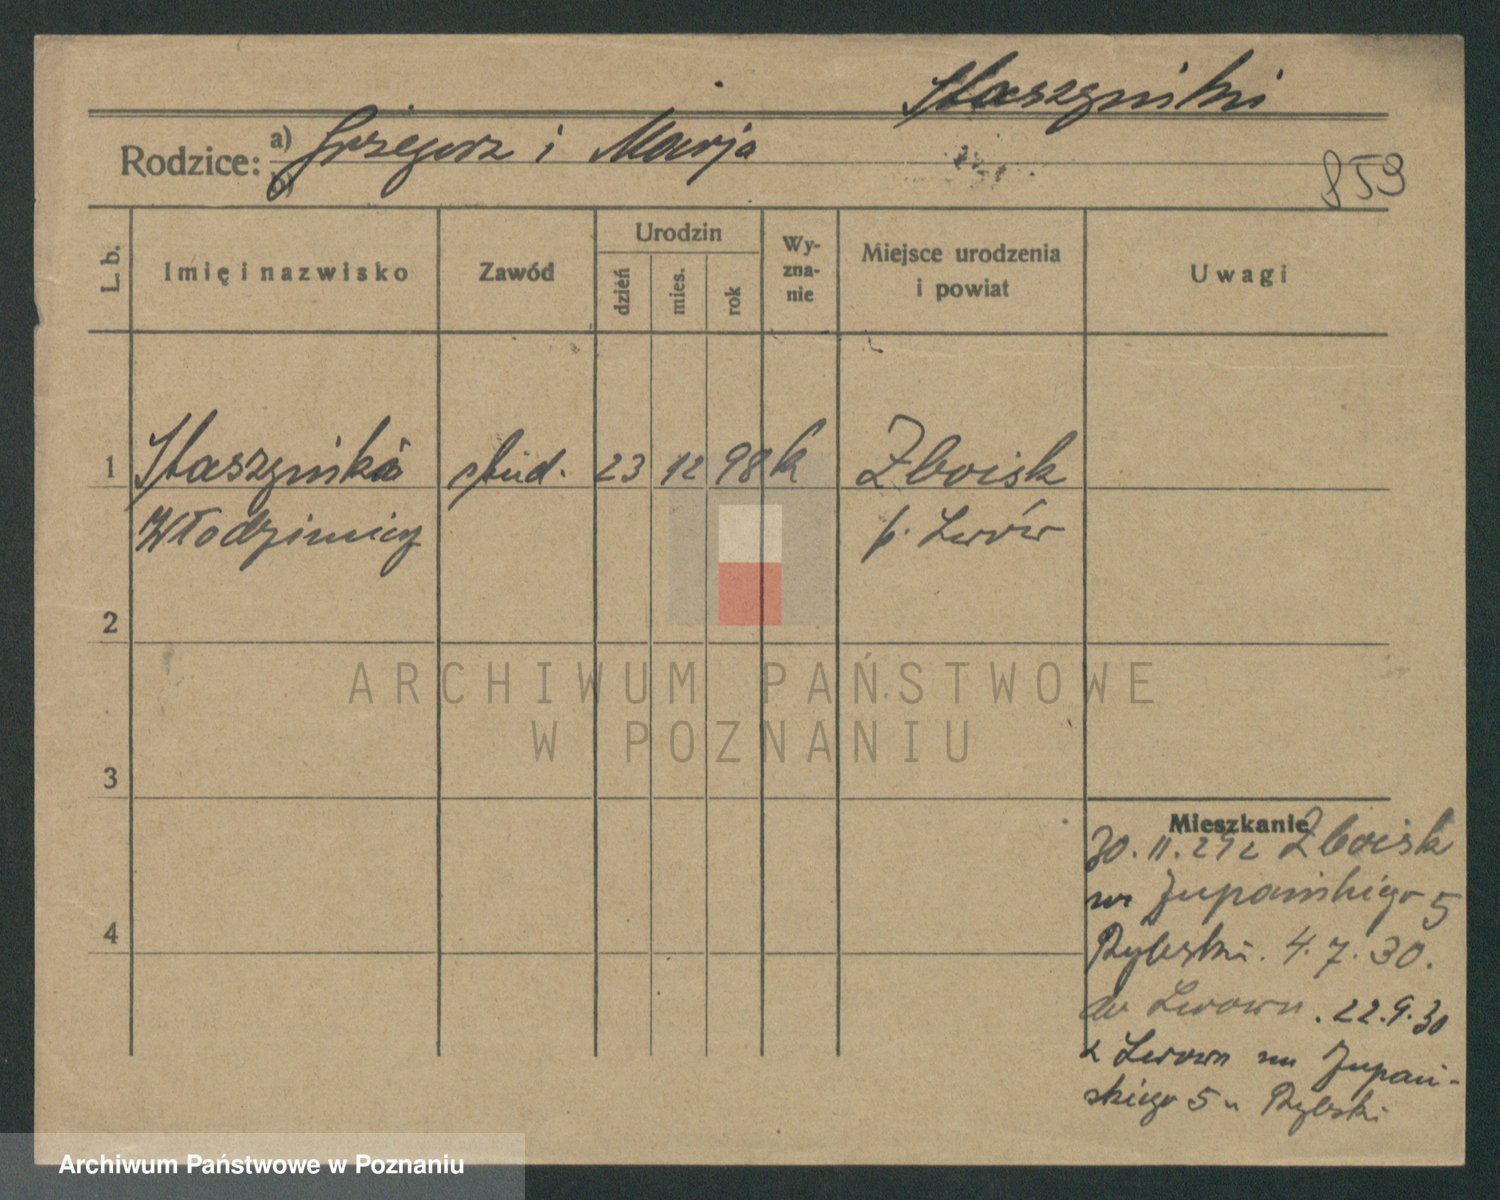 Staszyński
Rodzice: a) Grzegorz i Marja
b)
853
L. b.
Imię i nazwisko
Zawód
Urodzin
dzień
mies.
rok
Wy-
zna-
nie
Miejsce urodzenia
i powiat
Uwagi
1 stud. 23 12 98 k Zboisk
Włodzimierz p. Lwów
2
3
4
Mieszkanie
30. 11. 29 z Zboisk
na Żupańskiego 5
4. 7. 30.
do Lwowa. 22.9.30
z Lwowa na Żupań-
skiego 5 u
ARCHIWUM PAŃSTWOWE
W POZNANIU
Archiwum Państwowe w Poznaniu